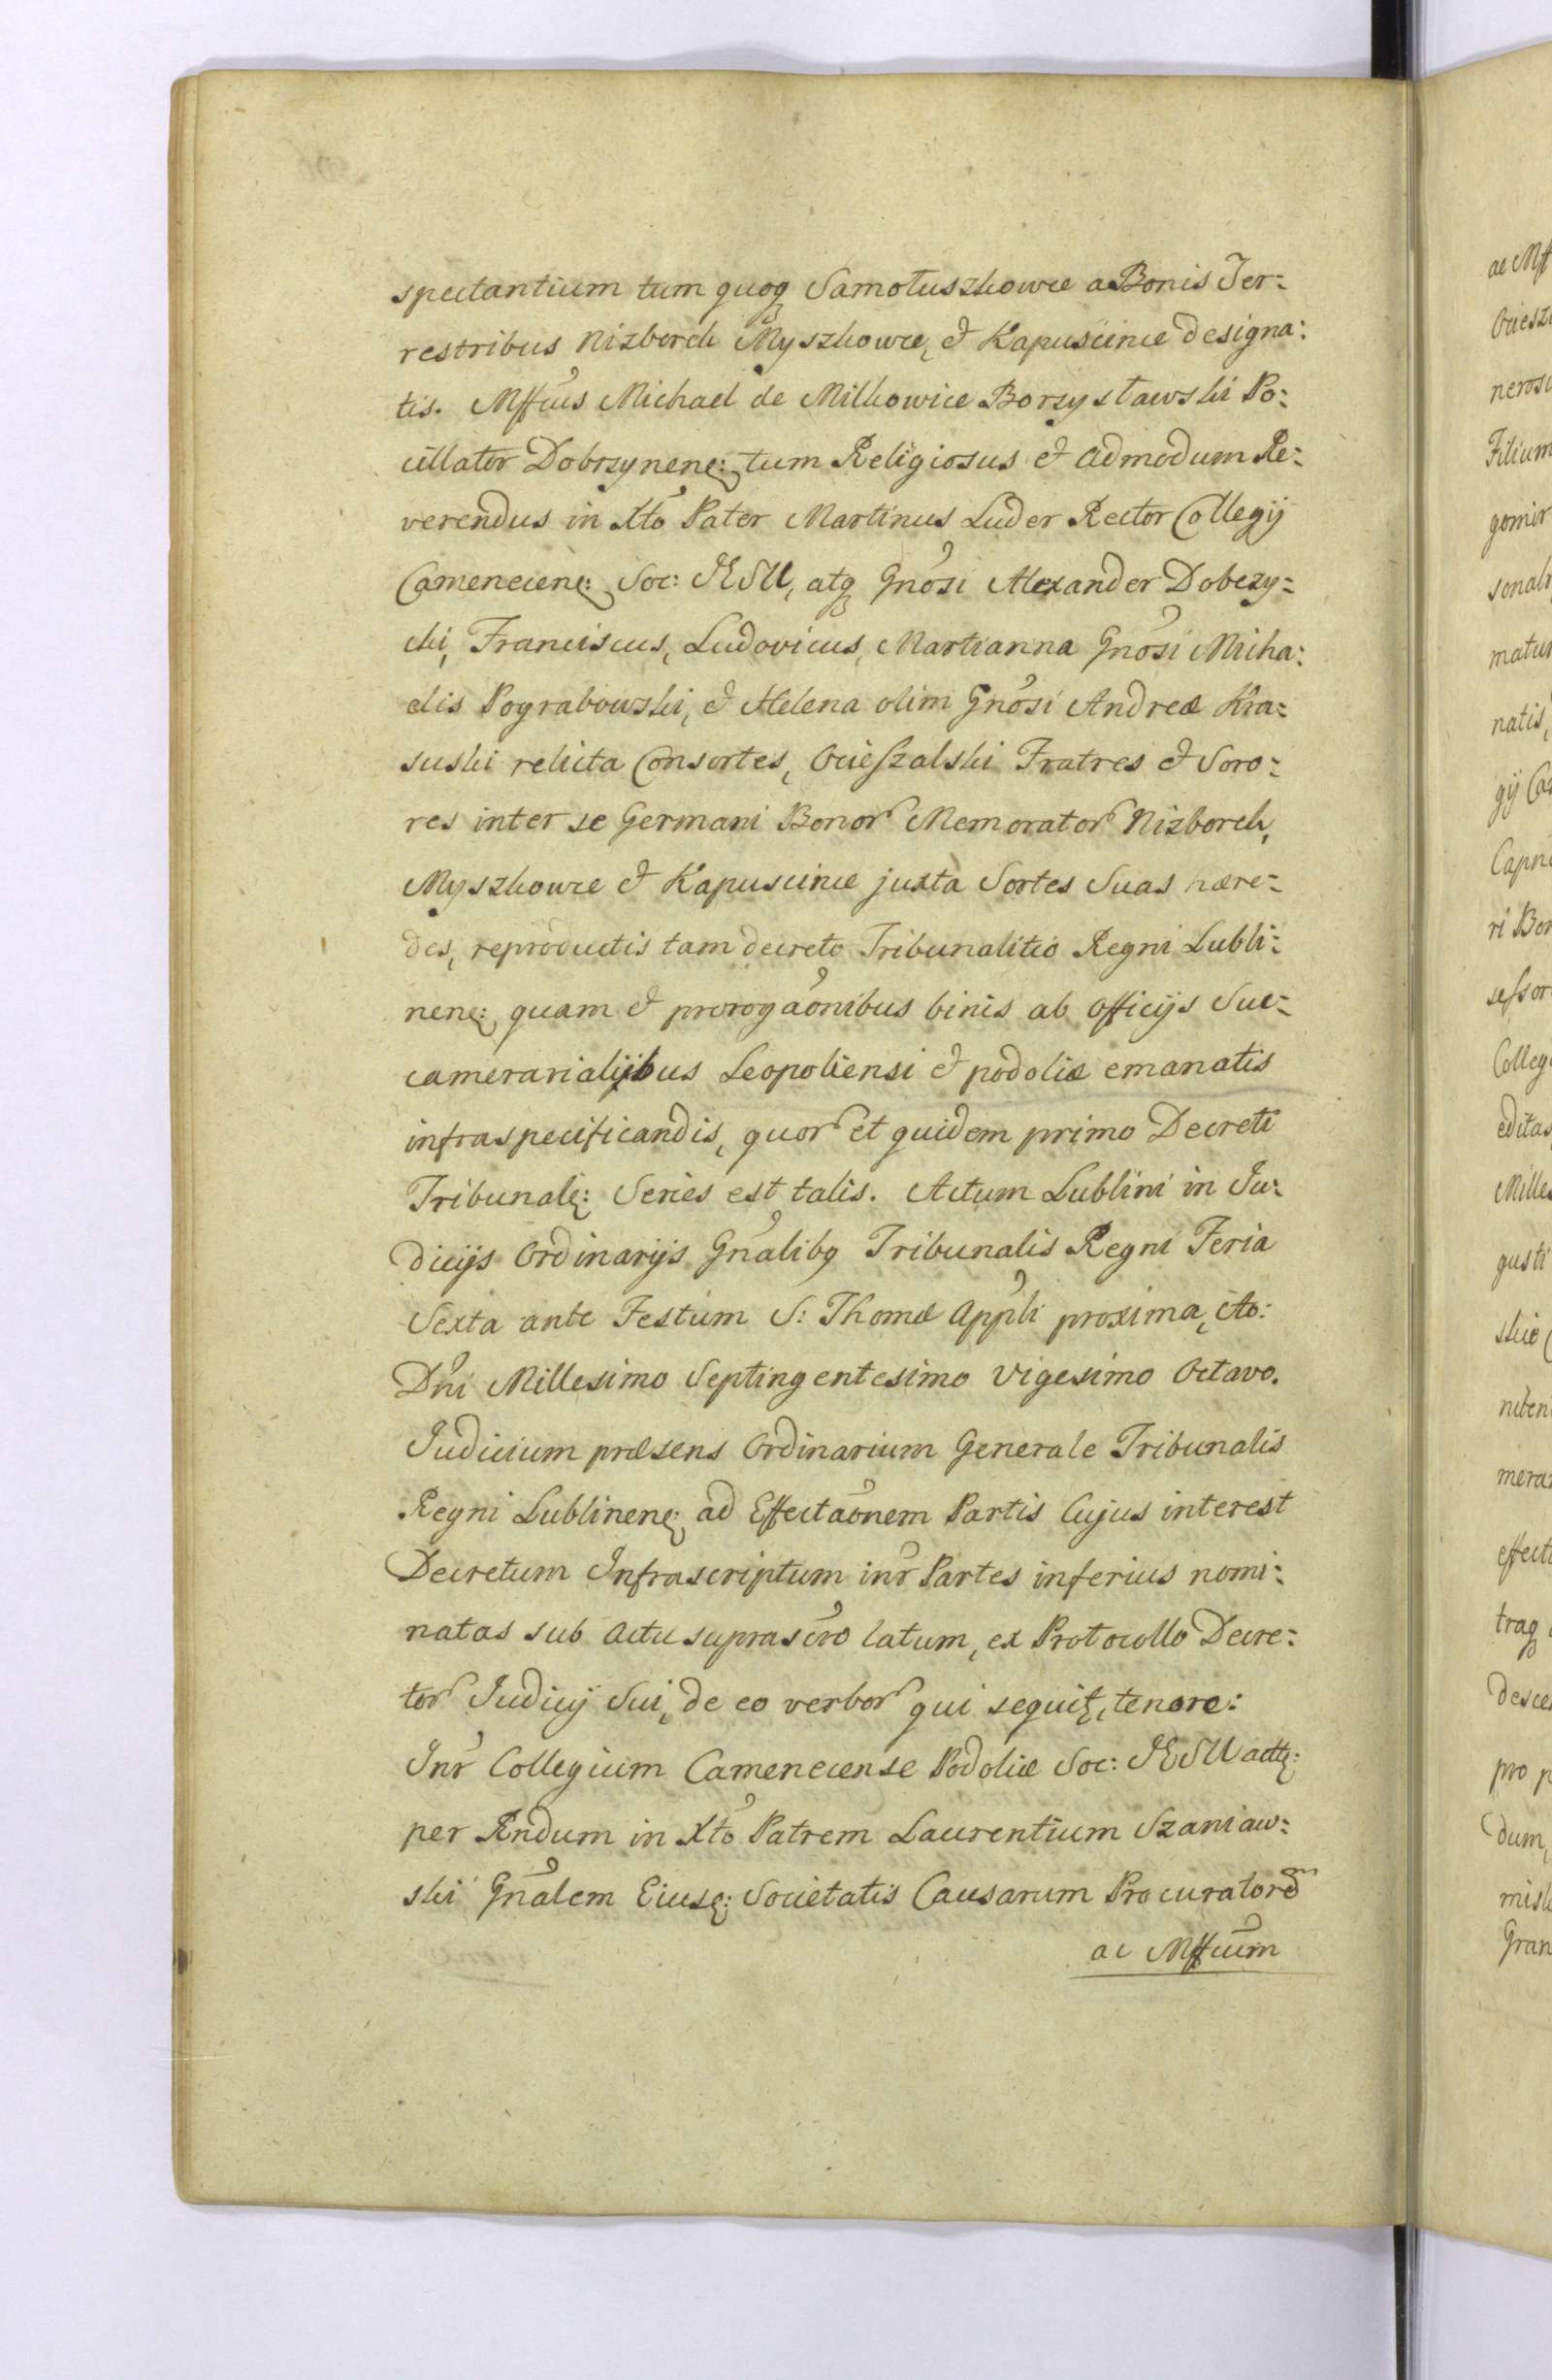 spectantium tum quoq Samotuszkowce a Bonis Ter:
restribus Nizborch Myszkowce, et Kapuscince designa:
tis. Mffcus Michael de Milkowice Borzysławski Po:
cillator Dobrzynen: tum Religiosus et admodum Re:
verendus in Xto Pater Martinus Luder Rector Collegij
Camenecen: Soc: JESU, atq Gnosi Alexander Dobczy:
cki, Franciscus, Ludovicus, Martianna Gnosi Micha:
elis Pograbowski, et Helena olim Gnosi Andreæ Kra:
suski relicta Consortes, Ocieszalski Fratres et Soro:
res inter se Germani Bonor Memorator Nizborch,
Myszkowce et Kapuscince juxta Sortes Suas hære:
des, reproductis tam decreto Tribunalitio Regni Lubli:
nen: quam et prorogaonibus binis ab officijs Suc:
camerarialijbus Leopoliensi et podoliæ emanatis
infraspecificandis, quor et quidem primo Decreti
Tribunal: Series est talis. Actum Lublini in Ju:
dicijs Ordinarijs Gnalibq Tribunalis Regni Feria
Sexta ante Festum S: Thomæ Appli proxima, Ao:
Dni Millesimo Septingentesimo Vigesimo Octavo.
Judicium præsens Ordinarium Generale Tribunalis
Regni Lublinen: ad Effectaonem Partis Cujus interest
Decretum Infrascriptum inr Partes inferius nomi:
natas sub actu suprascro latum, ex Protocollo Decre:
tor Judicij Sui, de eo verbor qui sequit, tenore:
Inr Collegium Camenecense Podoliæ Soc: JESU act:
per Rndum in Xto Patrem Laurentium Szaniaw:
ski Gnalem Eius: Societatis Causarum Procuratorem
ac Mffcum
ac Mff
Ociesz
neros
Filium
gomir
sonali
matur
natis,
gij Ca
Capn
ri Bon
sessor
Colleg
editas
Mille
gusti
skie
nien
mera
effect
traq
desce
pro p
dum,
misl
Gran